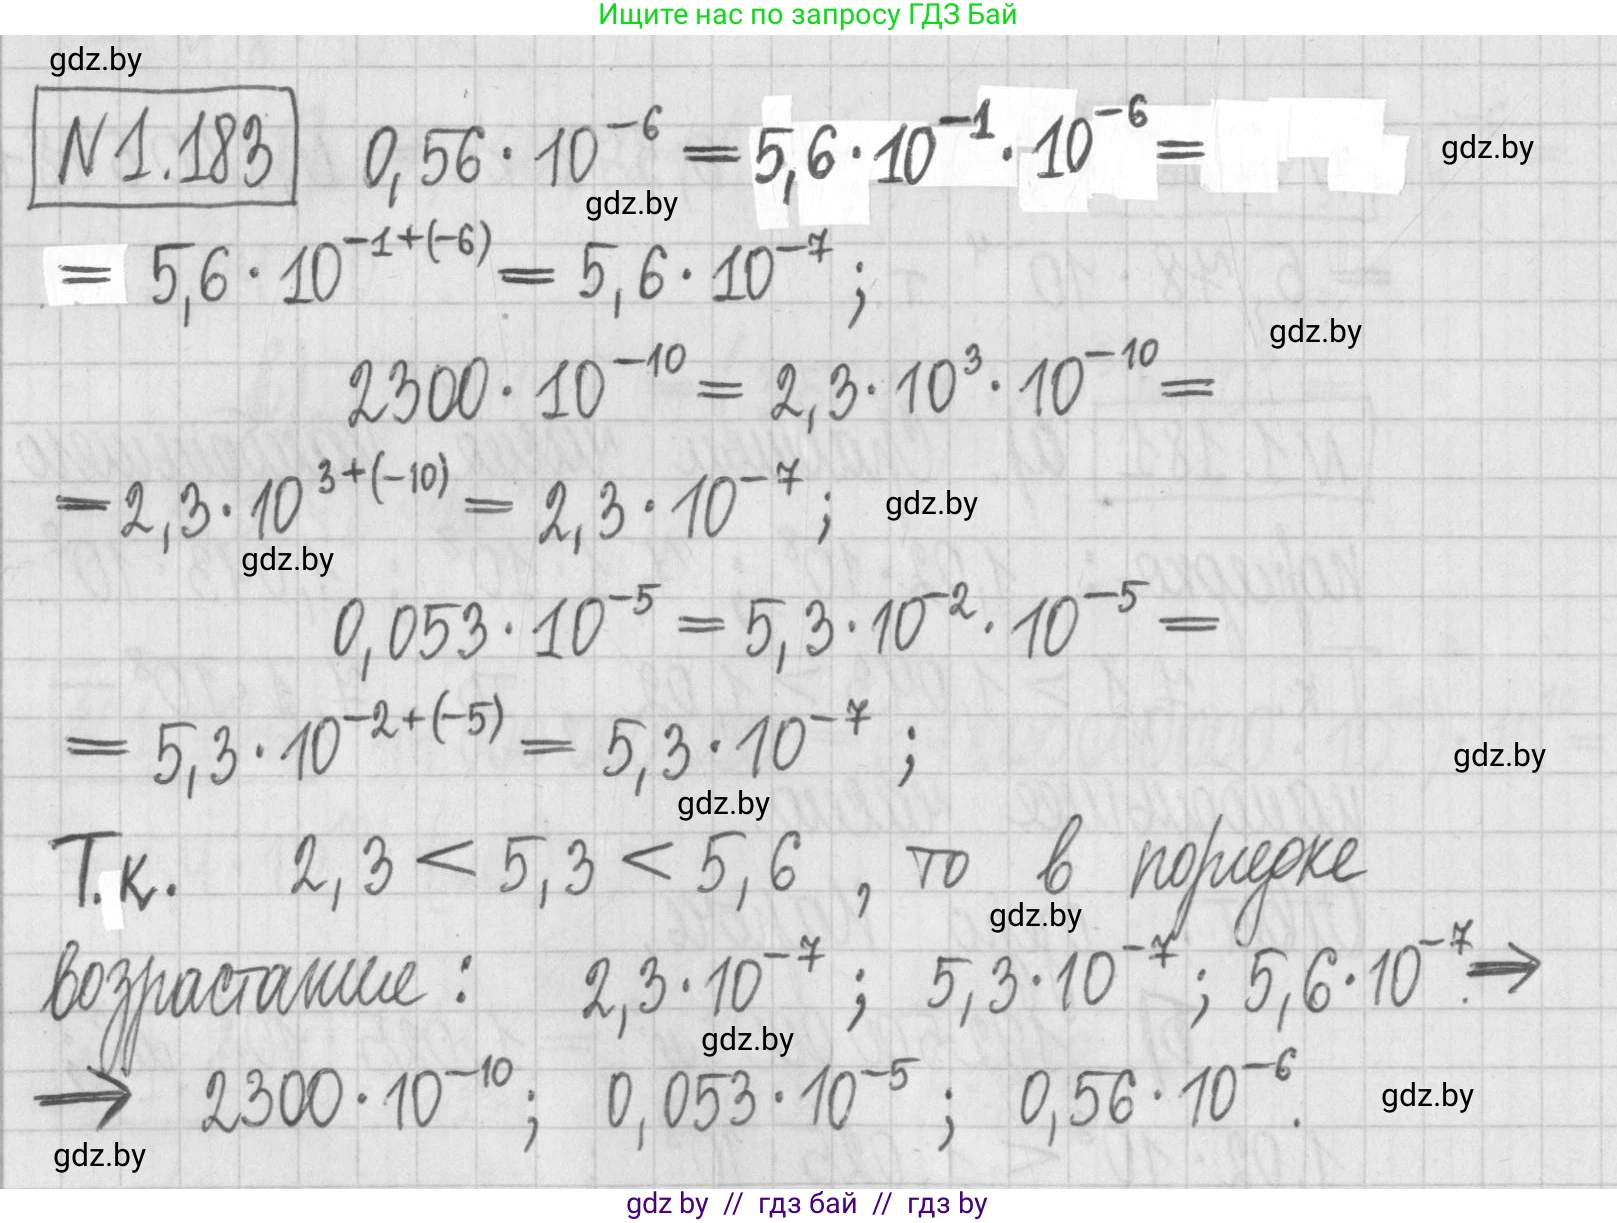 Ищите нас по запросу ГДЗ Бай
gdz.by
N1.183 0,56 · 10⁻⁶ = 5,6 · 10⁻¹ · 10⁻⁶ =
gdz.by
gdz.by
= 5,6 · 10⁻¹⁺⁽⁻⁶⁾ = 5,6 · 10⁻⁷ ;
gdz.by
2300 · 10⁻¹⁰ = 2,3 · 10³ · 10⁻¹⁰ =
= 2,3 · 10³⁺⁽⁻¹⁰⁾ = 2,3 · 10⁻⁷ ;
gdz.by
gdz.by
0,053 · 10⁻⁵ = 5,3 · 10⁻² · 10⁻⁵ =
= 5,3 · 10⁻²⁺⁽⁻⁵⁾ = 5,3 · 10⁻⁷ ;
gdz.by
gdz.by
Т.к. 2,3 < 5,3 < 5,6 , то в порядке
gdz.by
возрастание : 2,3 · 10⁻⁷ ; 5,3 · 10⁻⁷ ; 5,6 · 10⁻⁷. ⇒
gdz.by
⇒ 2300 · 10⁻¹⁰ ; 0,053 · 10⁻⁵ ; 0,56 · 10⁻⁶.
gdz.by
gdz.by
gdz by // гдз бай // гдз by